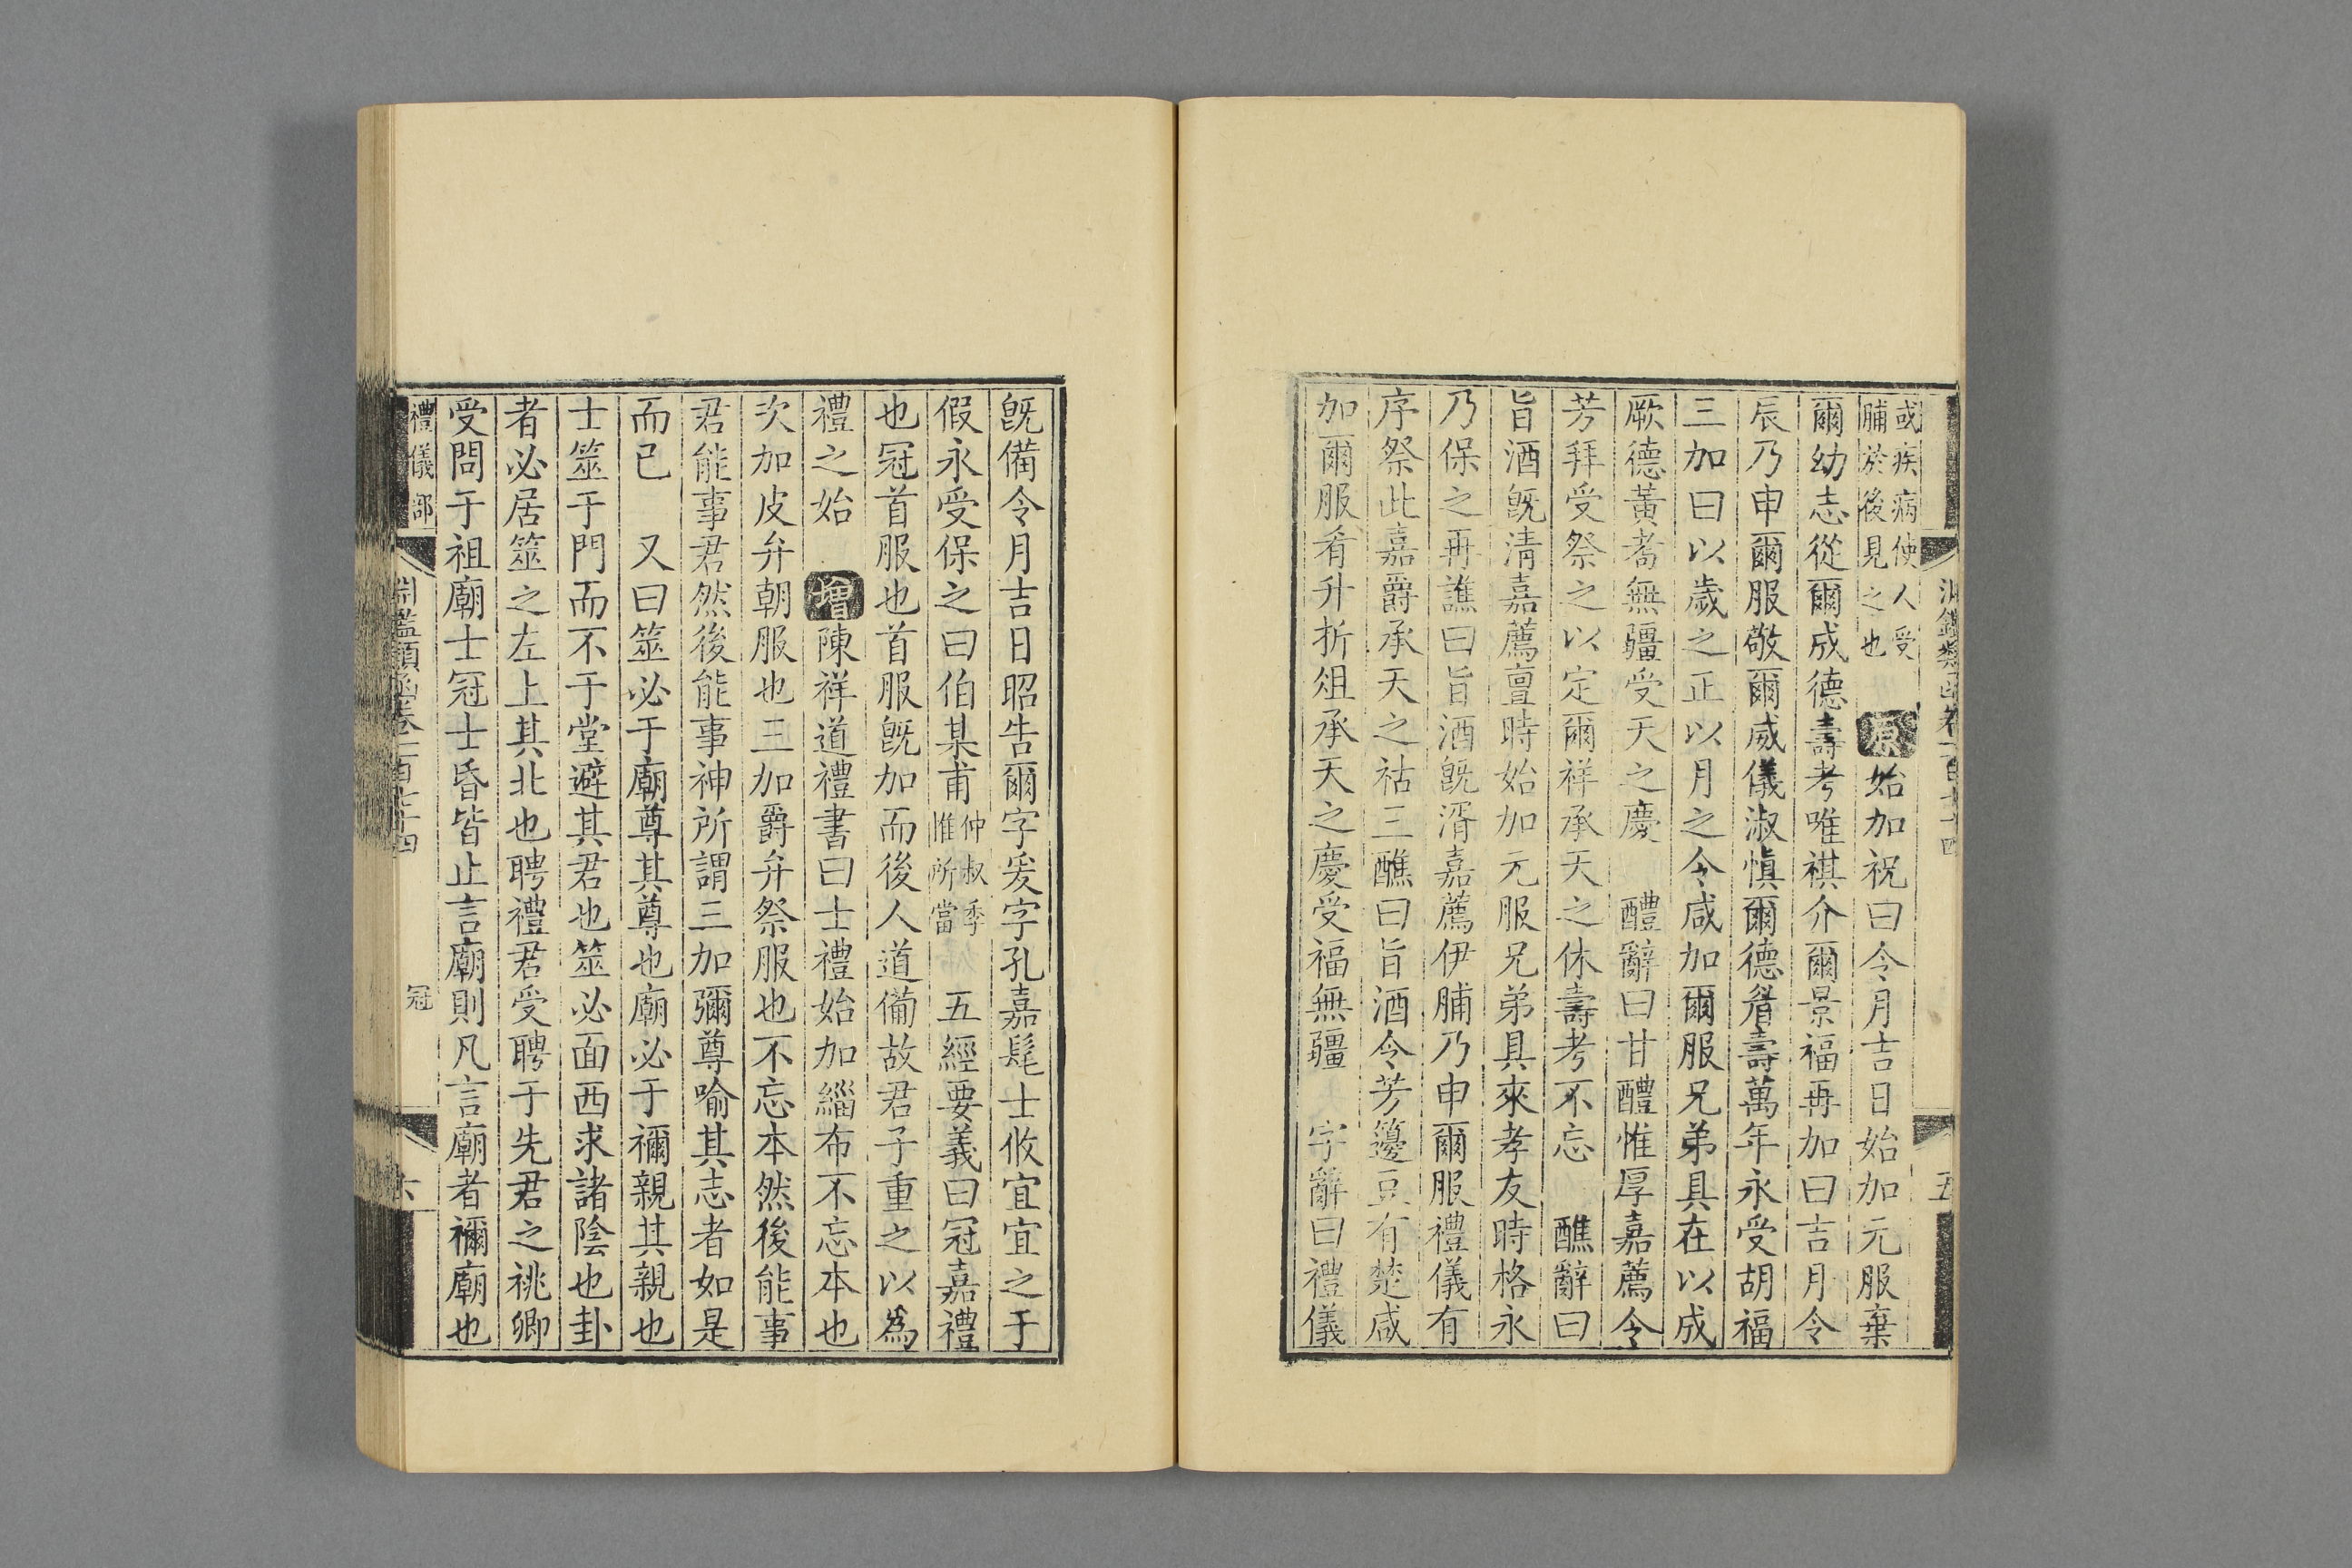 淵鑑類函卷一百七十四
五
或疾病使人受
脯於後見之也
原始加祝曰令月吉日始加元服棄
爾幼志從爾成德壽考唯祺介爾景福再加曰吉月令
辰乃申爾服敬爾威儀淑慎爾德眉壽萬年永受胡福
三加曰以歲之正以月之令咸加爾服兄弟具在以成
厥德黃耇無疆受天之慶 醴辭曰甘醴惟厚嘉薦令
芳拜受祭之以定爾祥承天之休壽考不忘 醮辭曰
旨酒旣淸嘉薦亶時始加元服兄弟具來孝友時格永
乃保之再譙曰旨酒旣湑嘉薦伊脯乃申爾服禮儀有
序祭此嘉爵承天之祜三醮曰旨酒令芳籩豆有楚咸
加爾服肴升折俎承天之慶受福無疆 字辭曰禮儀
旣備令月吉日昭告爾字爰字孔嘉髦士攸宜宜之于
假永受保之曰伯某甫仲叔季惟所當 五經要義曰冠嘉禮
也冠首服也首服旣加而後人道備故君子重之以爲
禮之始 增陳祥道禮書曰士禮始加緇布不忘本也
次加皮弁朝服也三加爵弁祭服也不忘本然後能事
君能事君然後能事神所謂三加彌尊喻其志者如是
而已 又曰筮必于廟尊其尊也廟必于禰親其親也
士筮于門而不于堂避其君也筮必面西求諸陰也卦
者必居筮之左上其北也聘禮君受聘于先君之祧卿
受問于祖廟士冠士昏皆止言廟則凡言廟者禰廟也
禮儀部
淵鑑類函卷一百七十四
冠
六